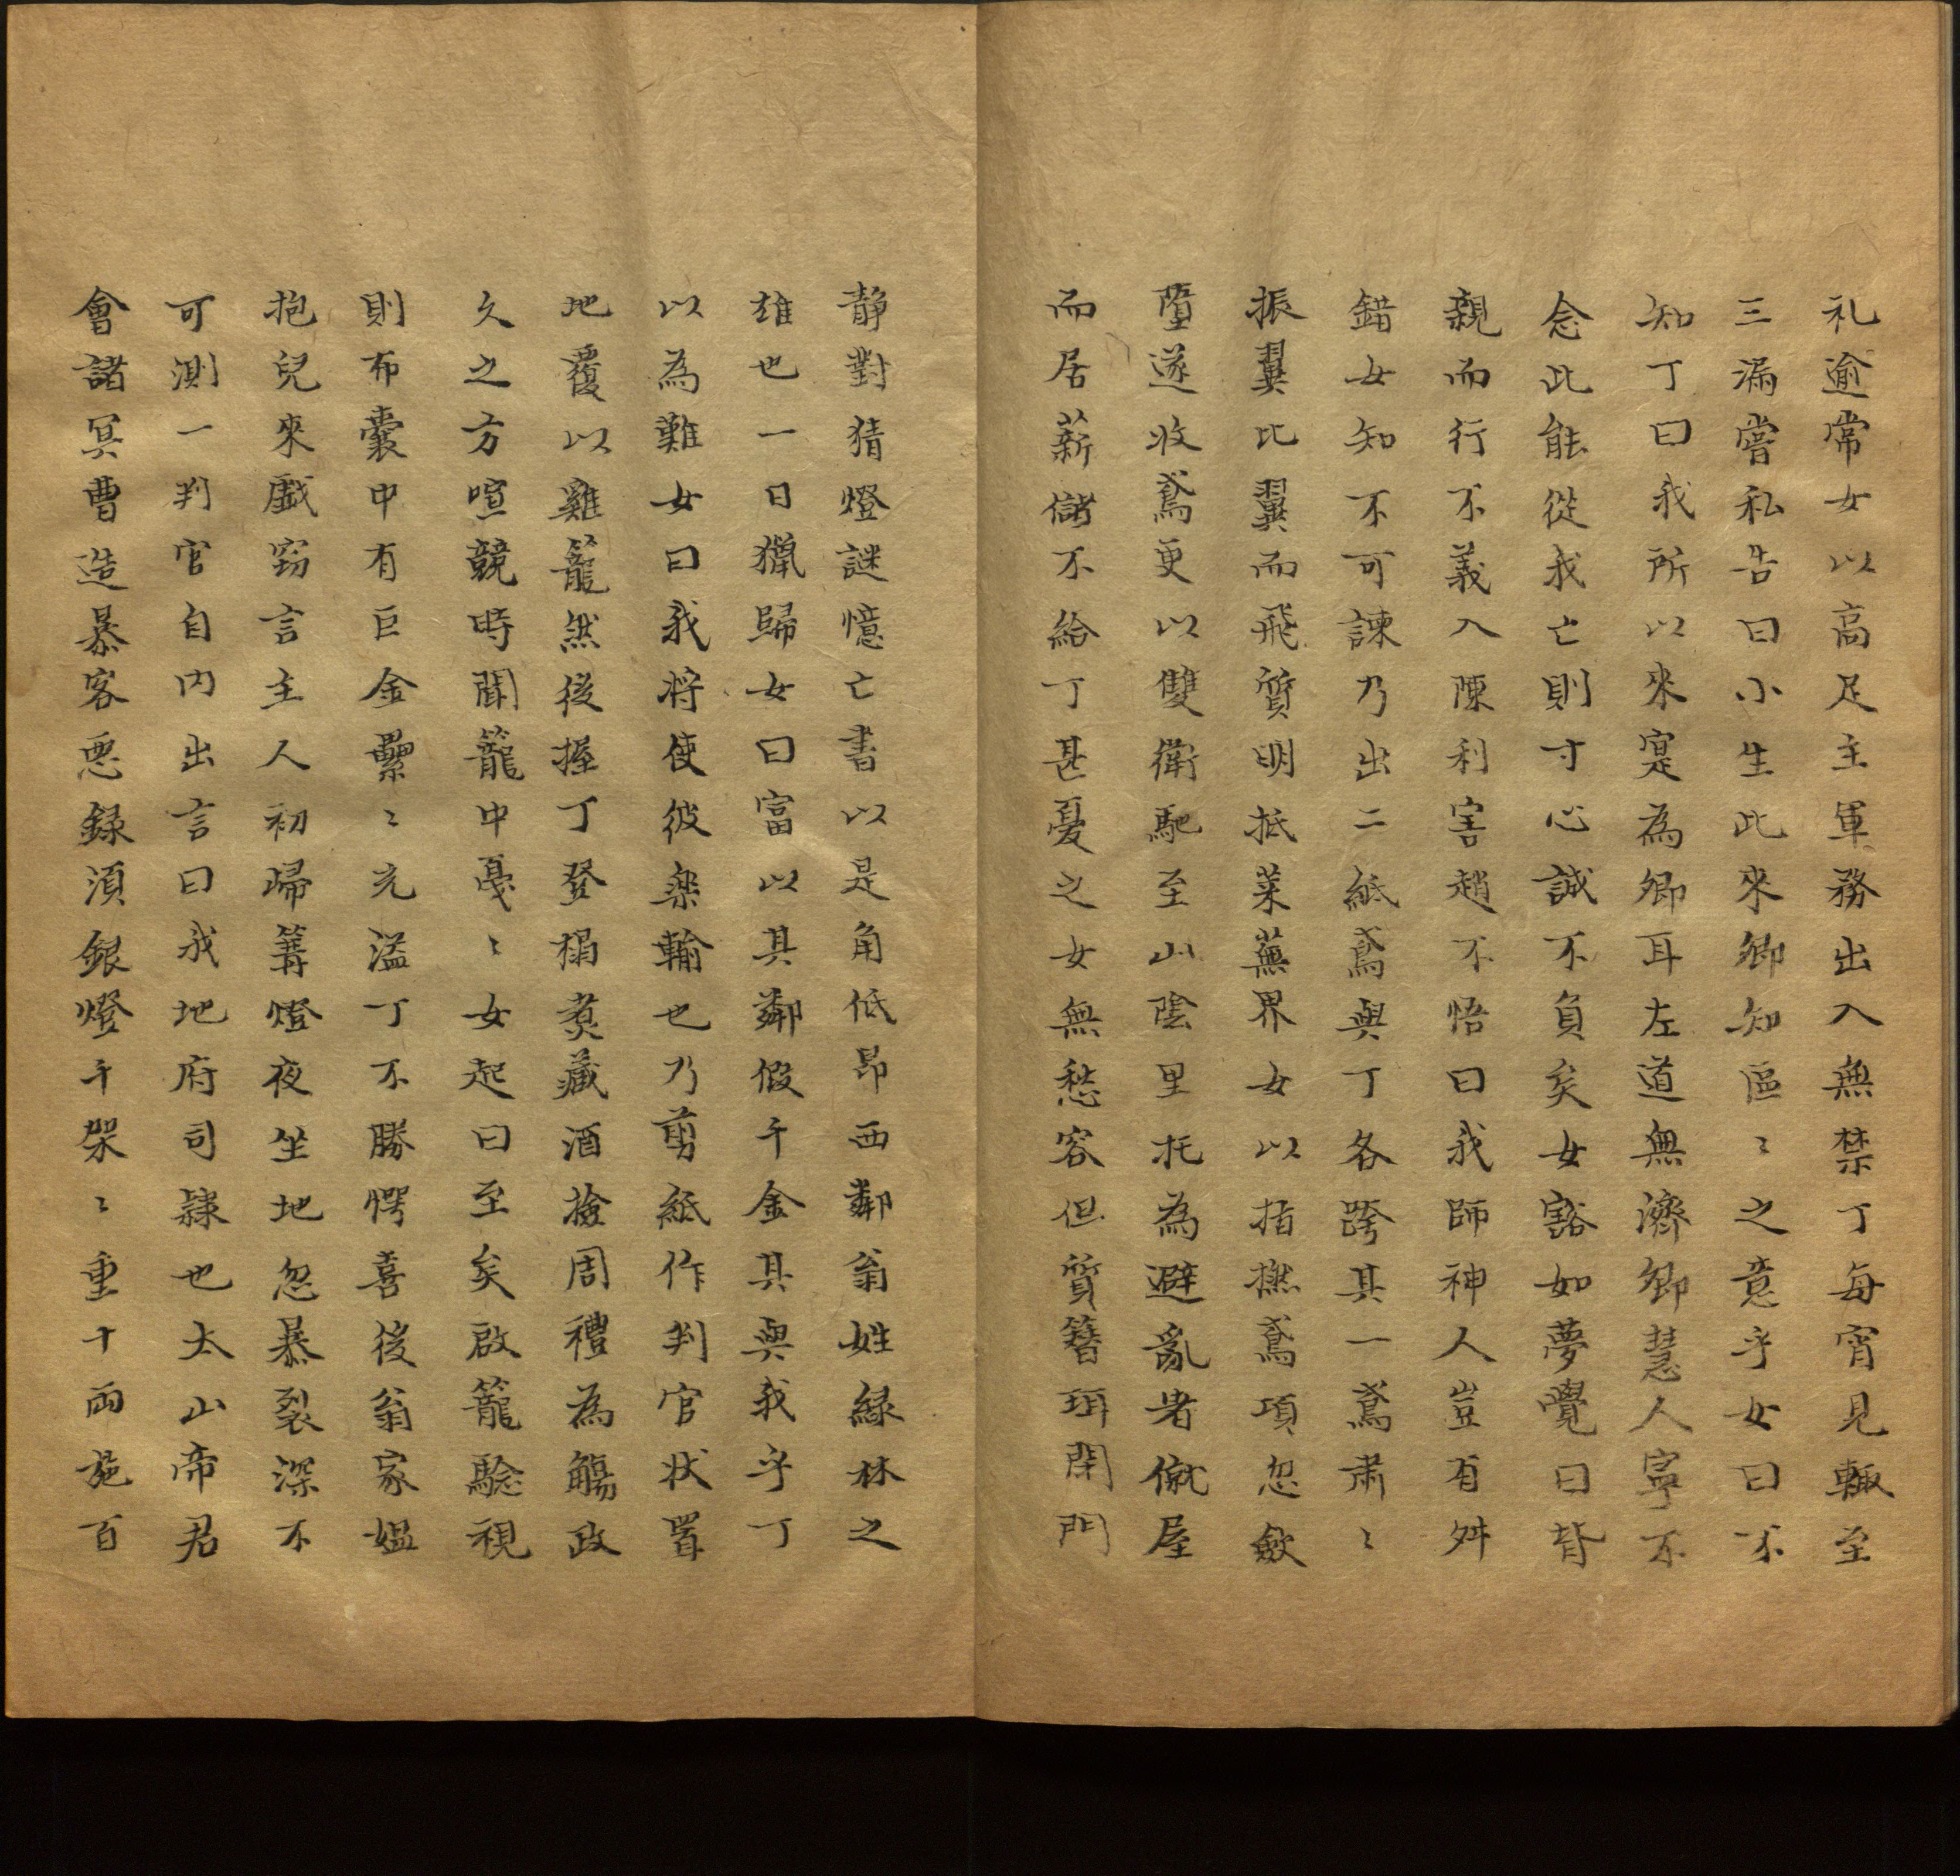 礼逾常女以高足主軍務出入無禁丁每宵見輙至
三漏嘗私告曰小生此來卿知區〻之意乎女曰不
知丁曰我所以來寔為卿耳左道無濟卿慧人寧不
念此能從我亡則寸心誠不負矣女豁如夢覺曰背
親而行不義入陳利害趙不悟曰我師神人豈有舛
錯女知不可諫乃出二紙鳶與丁各跨其一鳶肅〻
振翼比翼而飛質明抵菜蕪界女以指撚鳶項忽斂
墮遂收鳶更以雙衛馳至山陰里托為避亂者僦屋
而居薪儲不給丁甚憂之女無愁容但質簪珥閉門
静對猜燈謎憶亡書以是角低昂西鄰翁姓緑林之
雄也一日獵歸女曰富以其鄰假千金其與我乎丁
以為難女曰我將使彼楽輸也乃剪紙作判官状置
地覆以雞籠然後握丁登榻煑藏酒撿周禮為觴政
久之方喧競時聞籠中戛〻女起曰至矣啟籠騐視
則布囊中有巨金纍〻充溢丁不勝愕喜後翁家媪
抱兒來戱窃言主人初歸篝燈夜坐地忽暴裂深不
可測一判官自内出言曰我地府司隷也太山帝君
會諸冥曹造暴客悪録湏銀燈千架〻重十兩施百